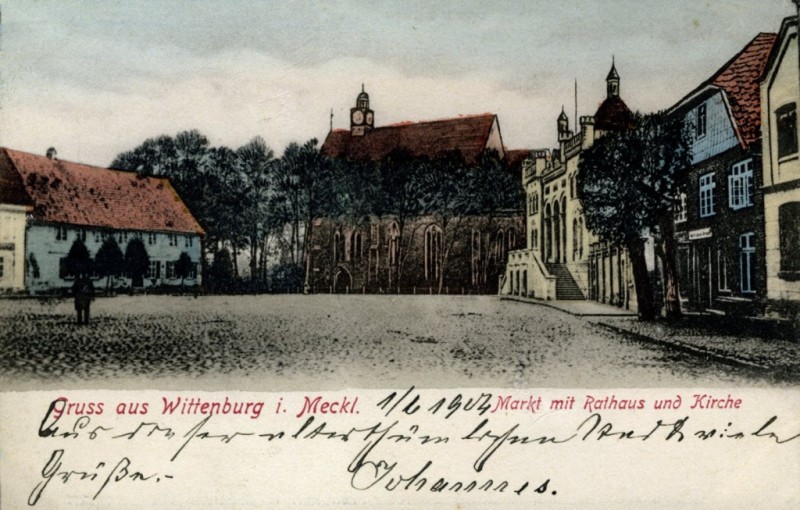 Gruss aus Wittenburg i. Meckl. 1/6 1904 Markt mit Rathaus und Kirche
Aus dieser altertümlichen Stadt viele
Grüße.-
Johannes.